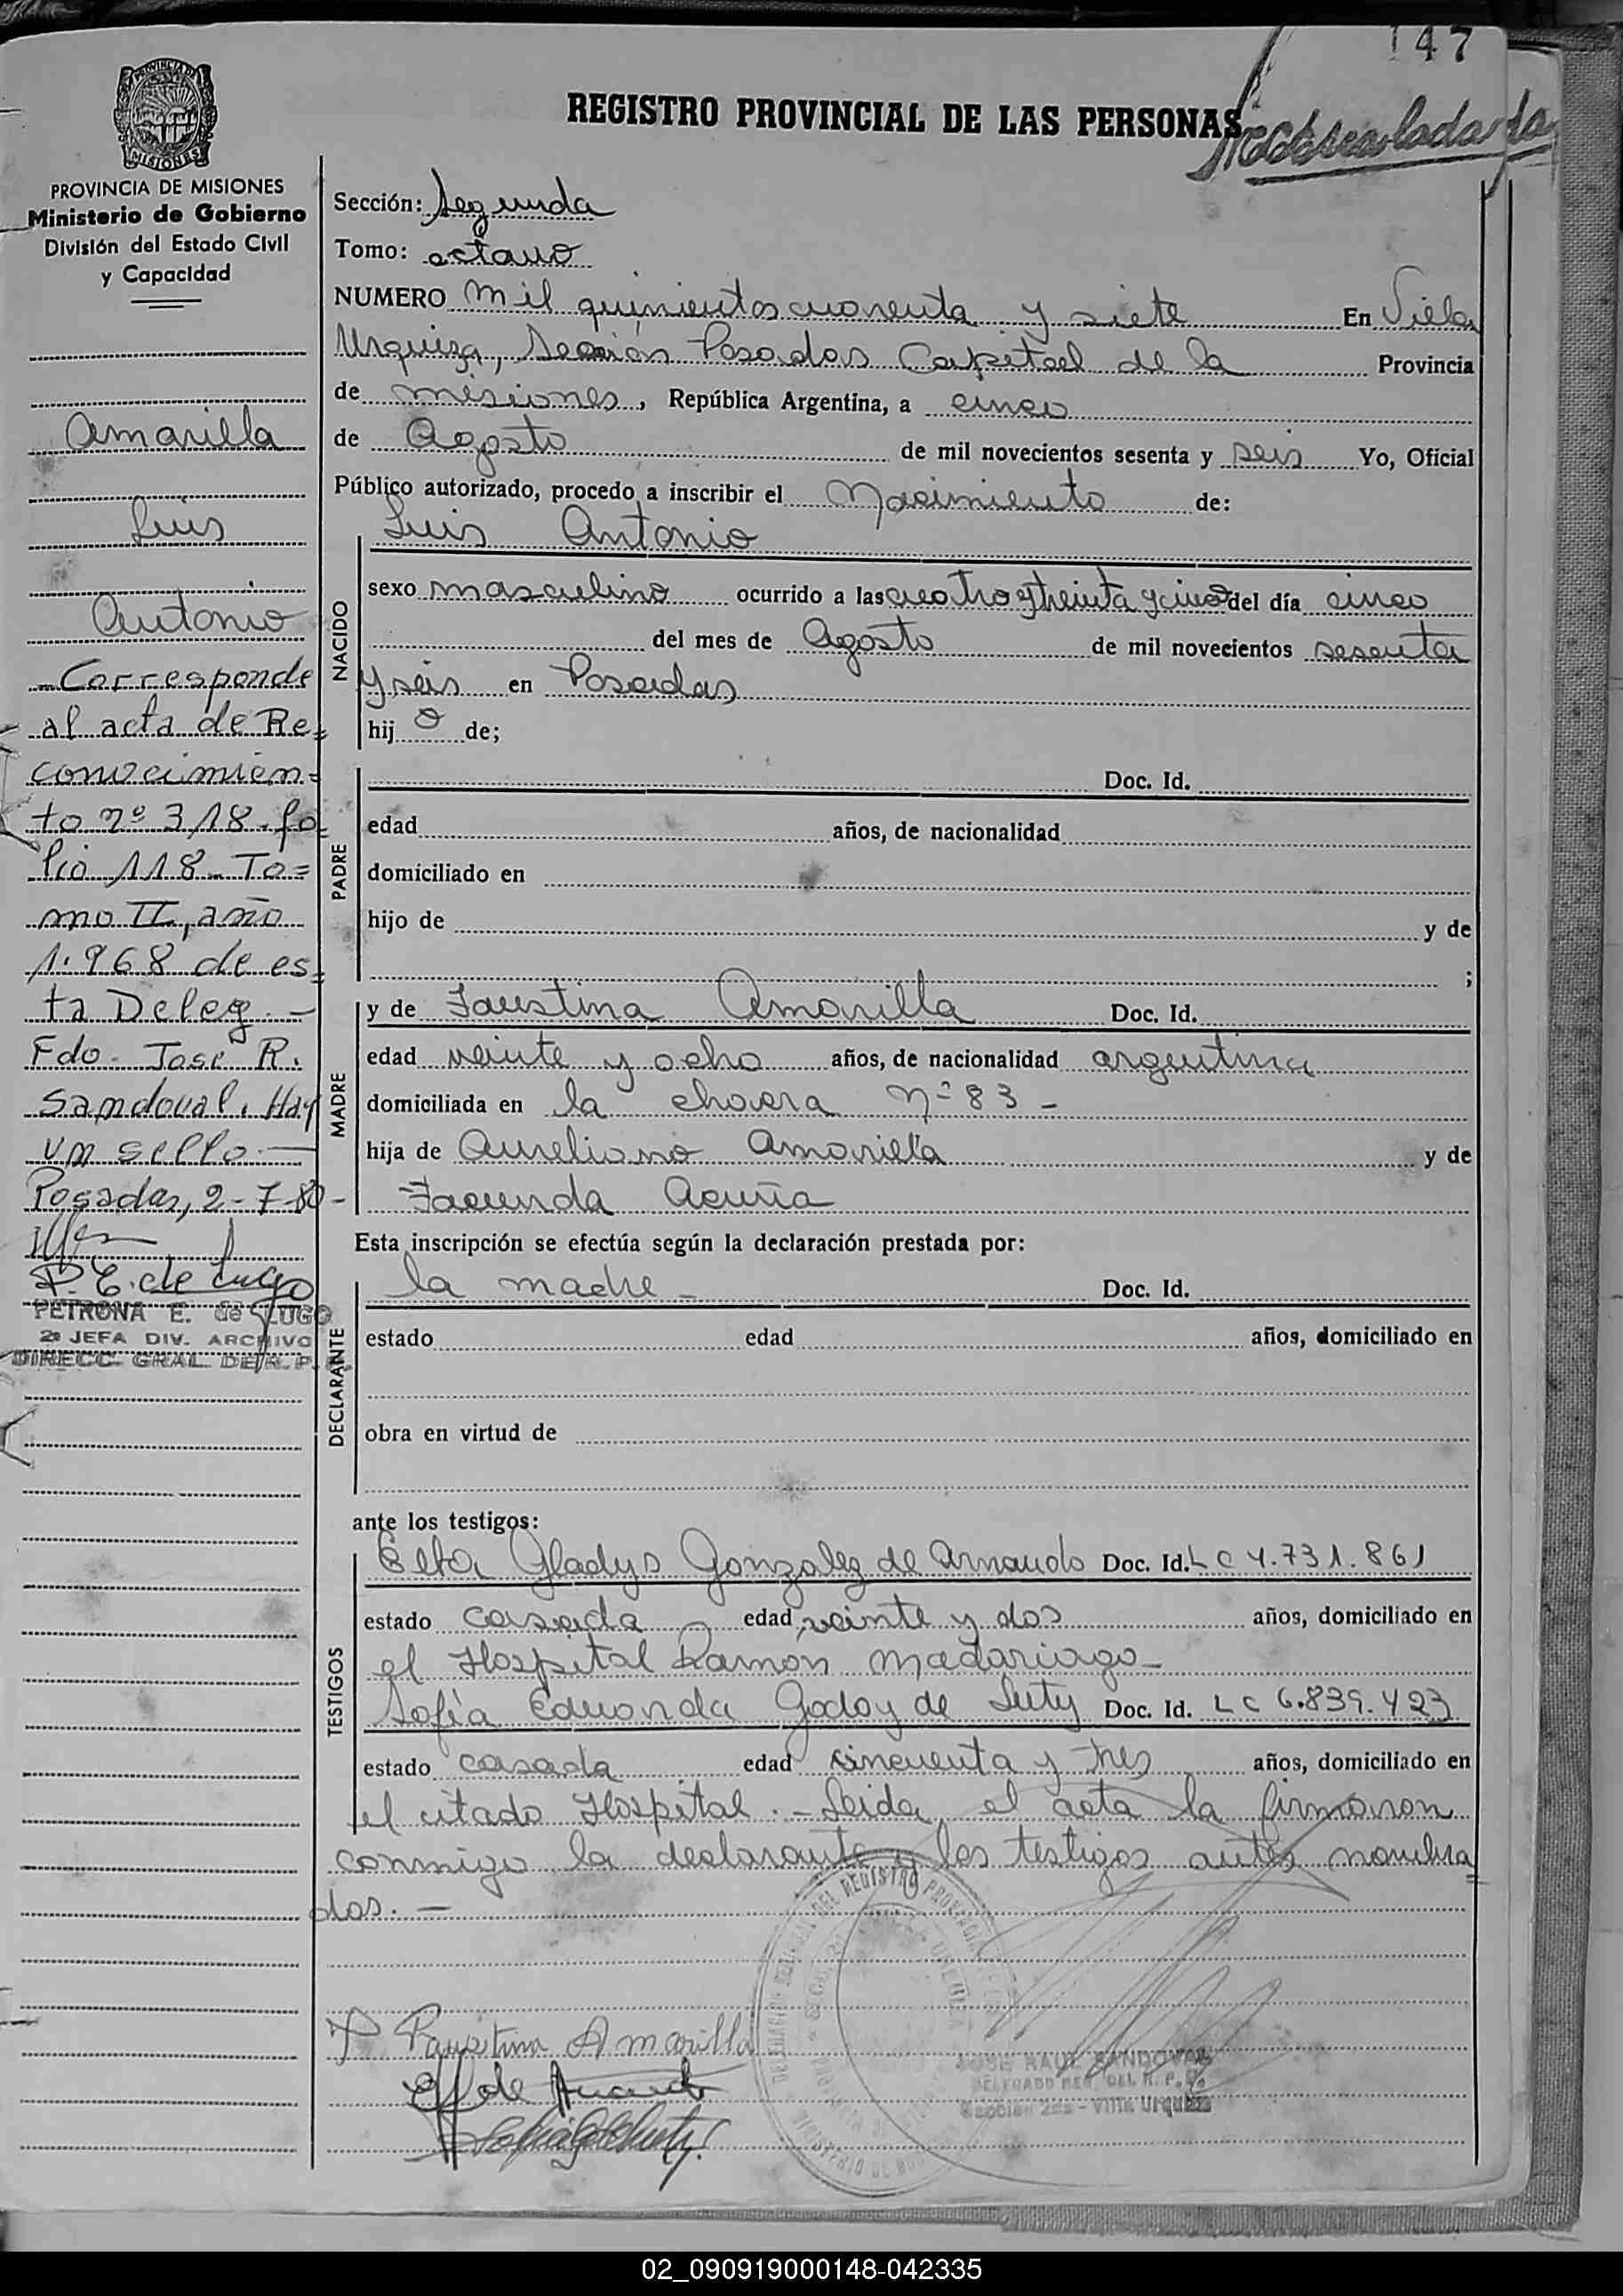 147
REGISTRO PROVINCIAL DE LAS PERSONAS
PROVINCIA DE MISIONES
Ministerio de Gobierno
División del Estado Civil
y Capacidad
Amarilla
Luis
Antonio
Corresponde
al acta de Re=
conocimien=
to nº 318. fo
lio 118 - To=
mo II, año
1.968 de es=
ta Deleg. -
Fdo. José R.
Sandoval. Hay
un sello. —
Posadas, 2-7-80-
P. E. de Lugo
PETRONA E. de LUGO
2ª JEFA DIV. ARCHIVO
DIRECC. GRAL. DE R. P.
Sección: Segunda
Tomo: octavo
NUMERO mil quinientos cuarenta y siete En Villa
Urquiza, Sección Posadas Capital de la Provincia
de misiones, República Argentina, a cinco
de Agosto de mil novecientos sesenta y seis Yo, Oficial
Público autorizado, procedo a inscribir el Nacimiento de:
NACIDO
Luis Antonio
sexo masculino ocurrido a las cuatro y treinta y cinco del día cinco
del mes de Agosto de mil novecientos sesenta
y seis en Posadas
hij o de;
PADRE
Doc. Id.
edad años, de nacionalidad
domiciliado en
hijo de y de
;
MADRE
y de Faustina Amarilla Doc. Id.
edad veinte y ocho años, de nacionalidad argentina
domiciliada en la chacra nº 83 -
hija de Aureliano Amarilla y de
Facunda Acuña
Esta inscripción se efectúa según la declaración prestada por:
DECLARANTE
la madre - Doc. Id.
estado edad años, domiciliado en
obra en virtud de
ante los testigos:
TESTIGOS
Elta Gladys Gonzalez de Arnaudo Doc. Id. L C 4.731.861
estado casada edad veinte y dos años, domiciliado en
el Hospital Ramon Madariaga -
Sofía Eduarda Godoy de Suty Doc. Id. L C 6.839.423
estado casada edad cincuenta y tres años, domiciliado en
el citado Hospital. - Leida el acta la firmaron
conmigo la declarante y los testigos antes nombra=
dos. —
Faustina Amarilla
JOSE RAUL SANDOVAL
DELEGADO REG. DEL R. P. P.
Sección 2da - Villa Urquiza
02_090919000148-042335